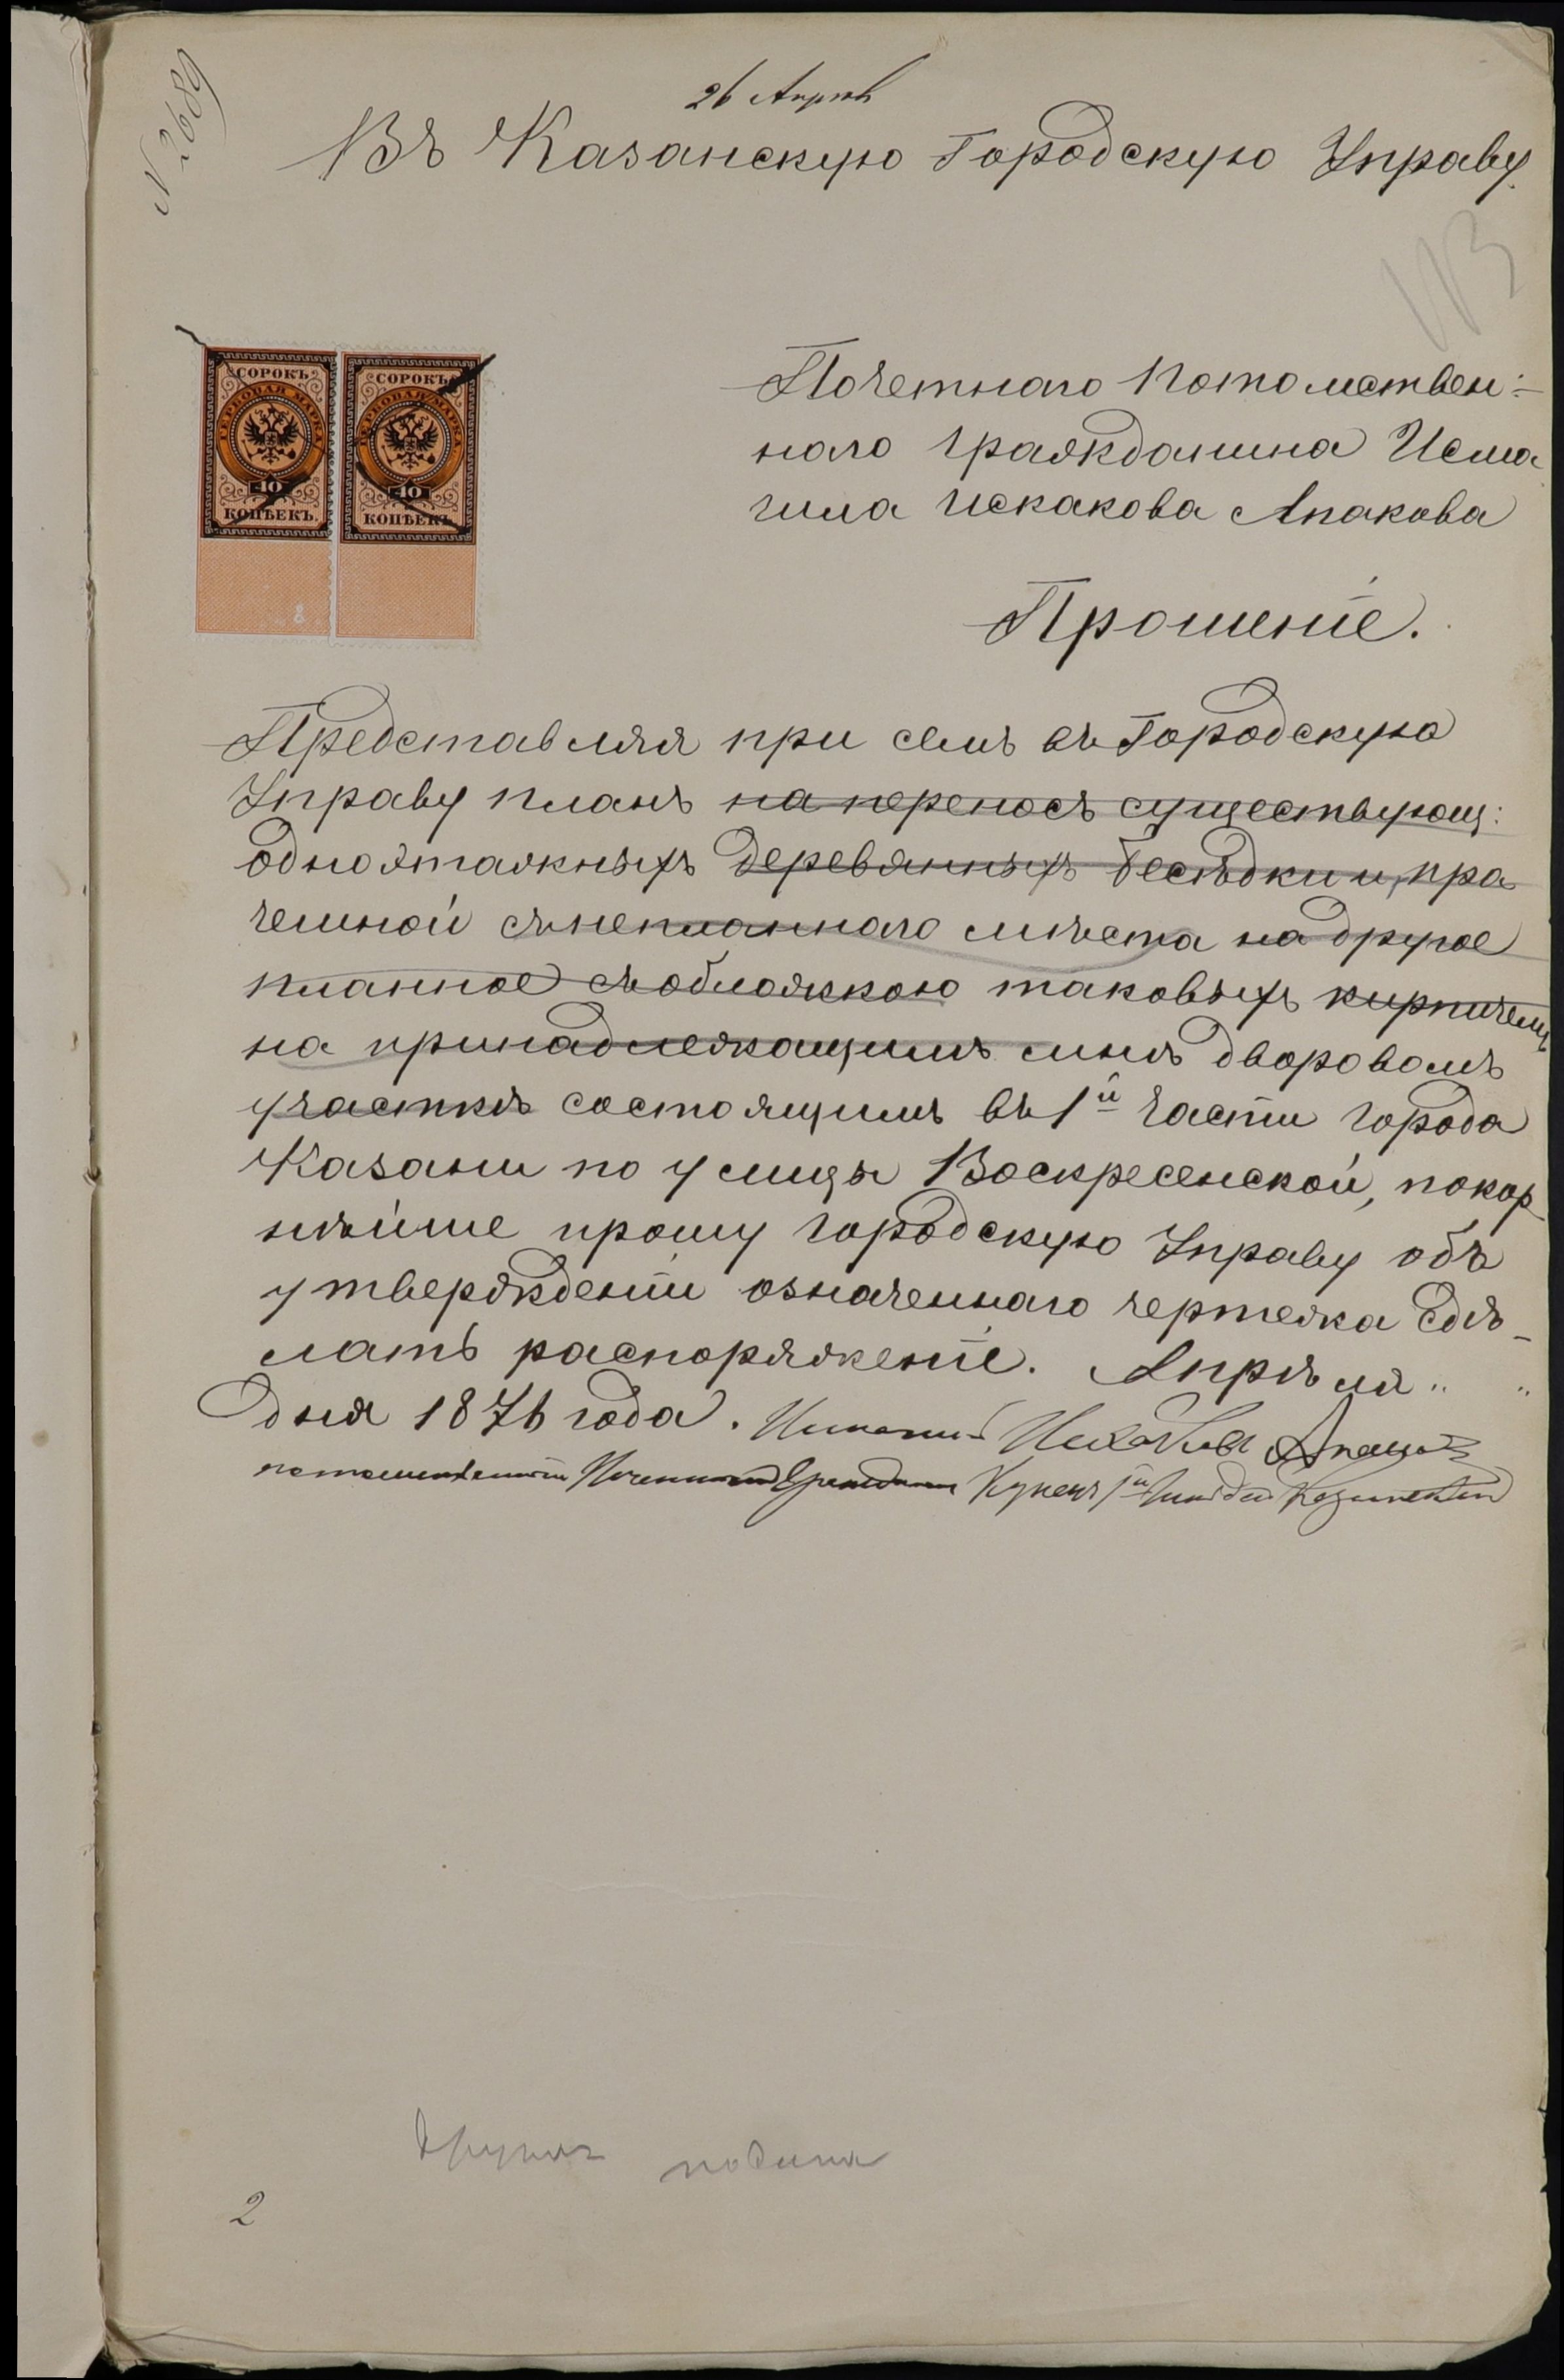 N 2689
26 Апрѣл
Въ Казанскую Городскую Управу.
113
СОРОКЪ
ГЕРБОВАЯ МАРКА
40
КОПѢЕКЪ.
СОРОКЪ
ГЕРБОВАЯ МАРКА
40
КОПѢЕКЪ.
Почетнаго Потомствен:
наго гражданина Исма
гила Искакова Апакова
Прошеніе.
Представляя при семъ въ Городскую
Управу планъ на переносъ существующ:
одноэтажныхъ деревянныхъ бесѣдки и пра
чешной съ непланнаго мѣста на другое
планное съ обложкою таковыхъ кирпичемъ
на принадлежащимъ мнѣ дворовомъ
участкѣ состоящимъ въ 1й части города
Казани по улицѣ Воскресенской, покор
нѣйше прошу городскую Управу объ
утвержденіи означеннаго чертежа сдѣ-
лать распоряженіе. Апрѣля „ „
дня 1876 года. Исмагилъ Искаковъ Апаковъ
потомственный Почетный Гражданинъ Купецъ 1й Гильдіи Казанскій
другая подана
2